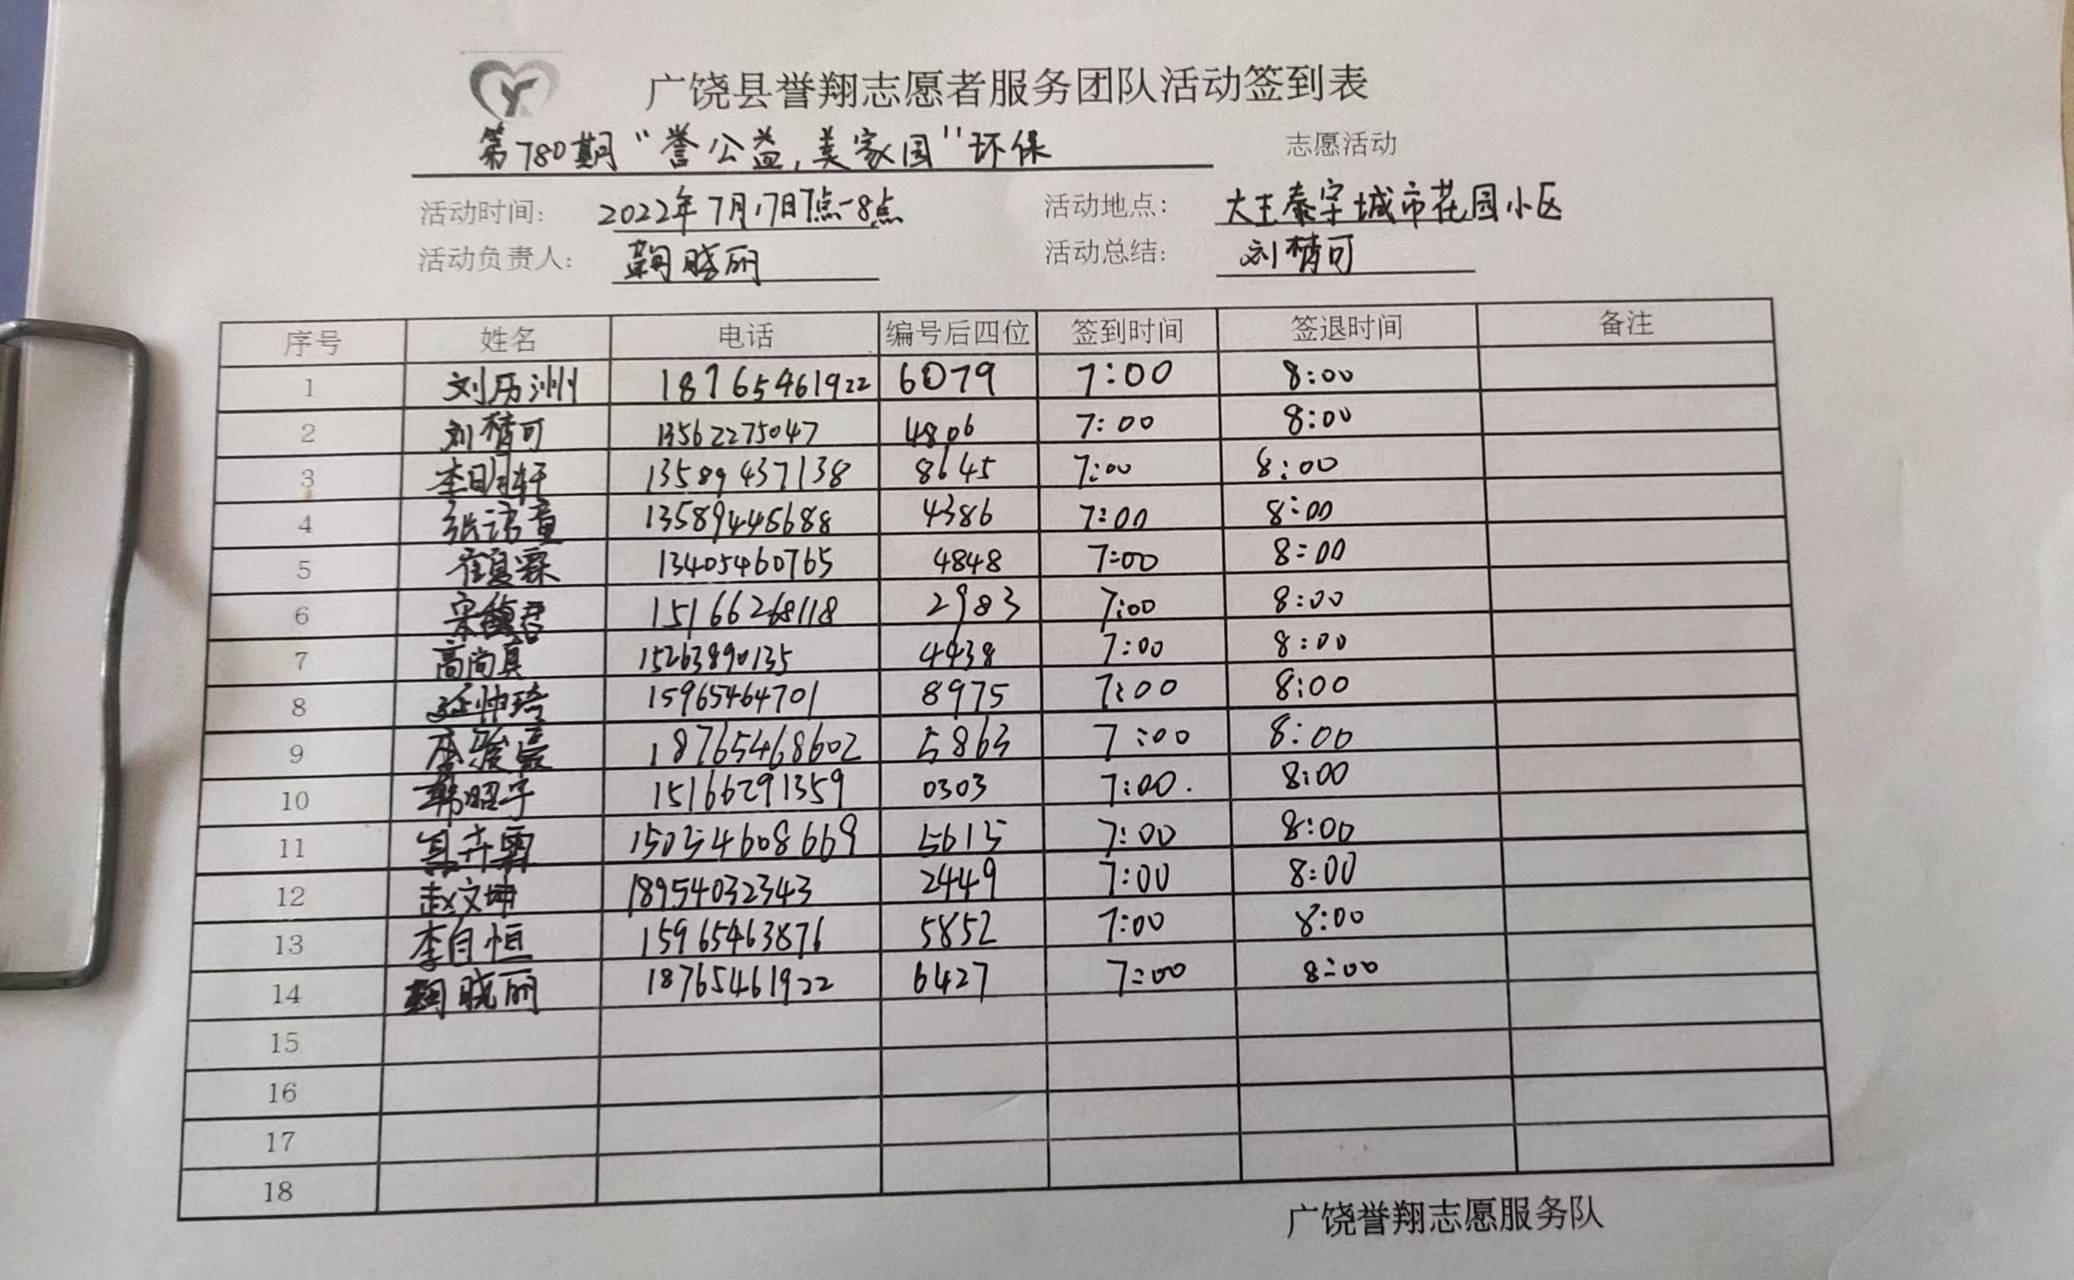 广饶县誉翔志愿者服务团队活动签到表
第780期“誉公益,美家园”环保 志愿活动
活动时间: 2022年7月17日7点-8点 活动地点: 大王泰宇城市花园小区
活动负责人: 鞠晓丽 活动总结: 刘楷可
序号 姓名 电话 编号后四位 签到时间 签退时间 备注
1 刘历洲 18765461922 6079 7:00 8:00
2 刘楷可 13562275047 4806 7:00 8:00
3 李明轩 13589437138 8645 7:00 8:00
4 张诗童 13589445688 4386 7:00 8:00
5 崔夏霖 13405460765 4848 7:00 8:00
6 15166268118 2983 7:00 8:00
7 高尚真 15263890135 4438 7:00 8:00
8 延帅琦 15965464701 8975 7:00 8:00
9 18765468602 5863 7:00 8:00
10 韩昭宇 15166291359 0303 7:00. 8:00
11 15054608669 5615 7:00 8:00
12 赵文坤 18954032343 2449 7:00 8:00
13 李自恒 15965463876 5852 7:00 8:00
14 鞠晓丽 18765461922 6427 7:00 8:00
15
16
17
18
广饶誉翔志愿服务队